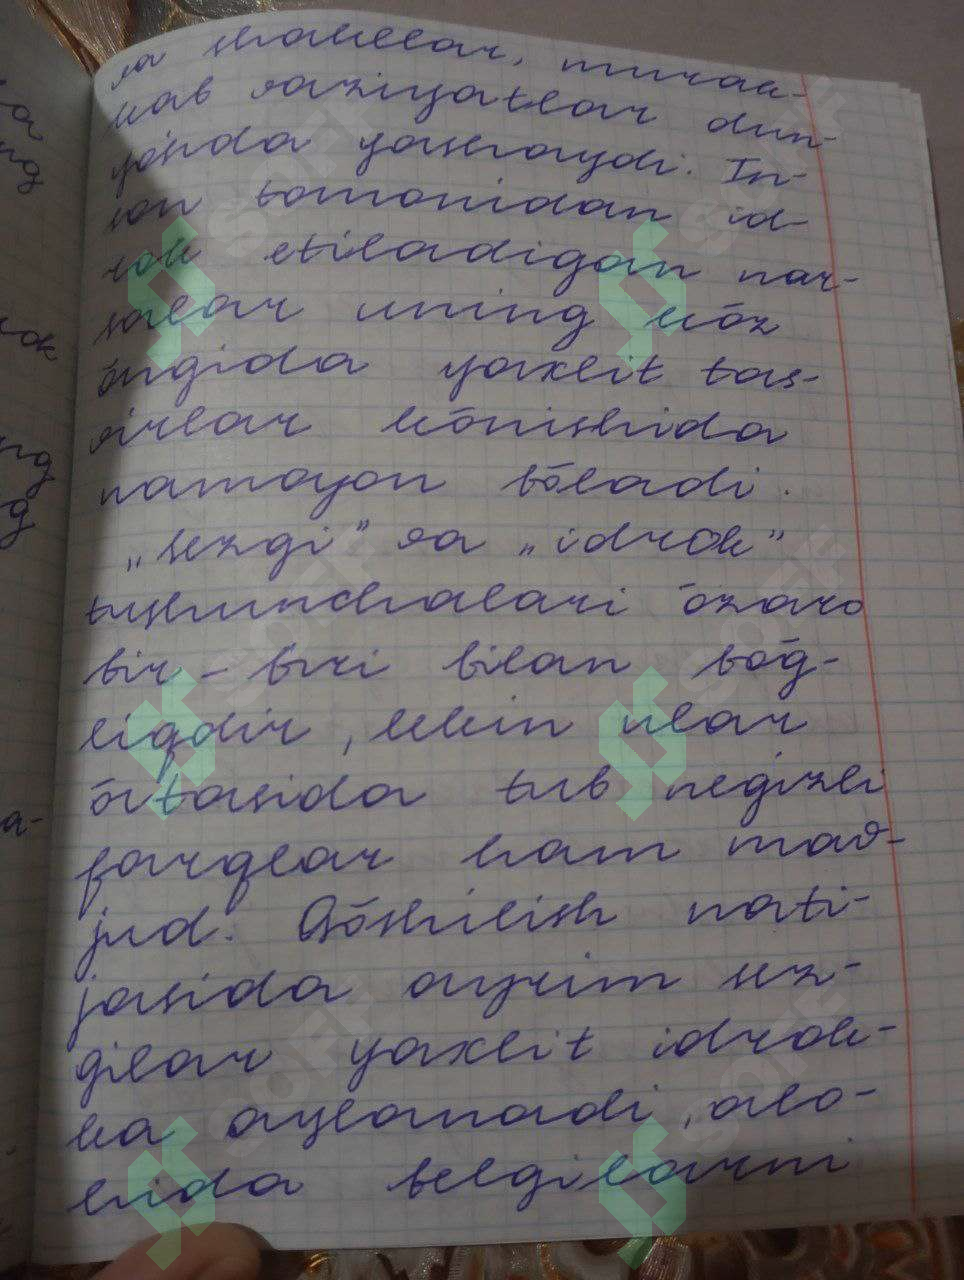 va shakllar, murak-
kab vaziyatlar dun-
yosida yashaydi. In-
son tomonidan id-
rok etiladigan nar-
salar uning kōz
ōngida yaxlit tas-
sirlar kōrinishida
namoyon bōladi.
„sezgi” va „idrok”
tushunchalari ōzaro
bir-biri bilan bōg-
liqdir, lekin ular
ōrtasida tub negizli
farqlar ham mav-
jud. Qōshilish nati-
jasida ayrim sez-
gilar yaxlit idrok-
ka aylanadi, alo-
hida belgilarni
SOFF
SOFF
SOFF
SOFF
SOFF
SOFF